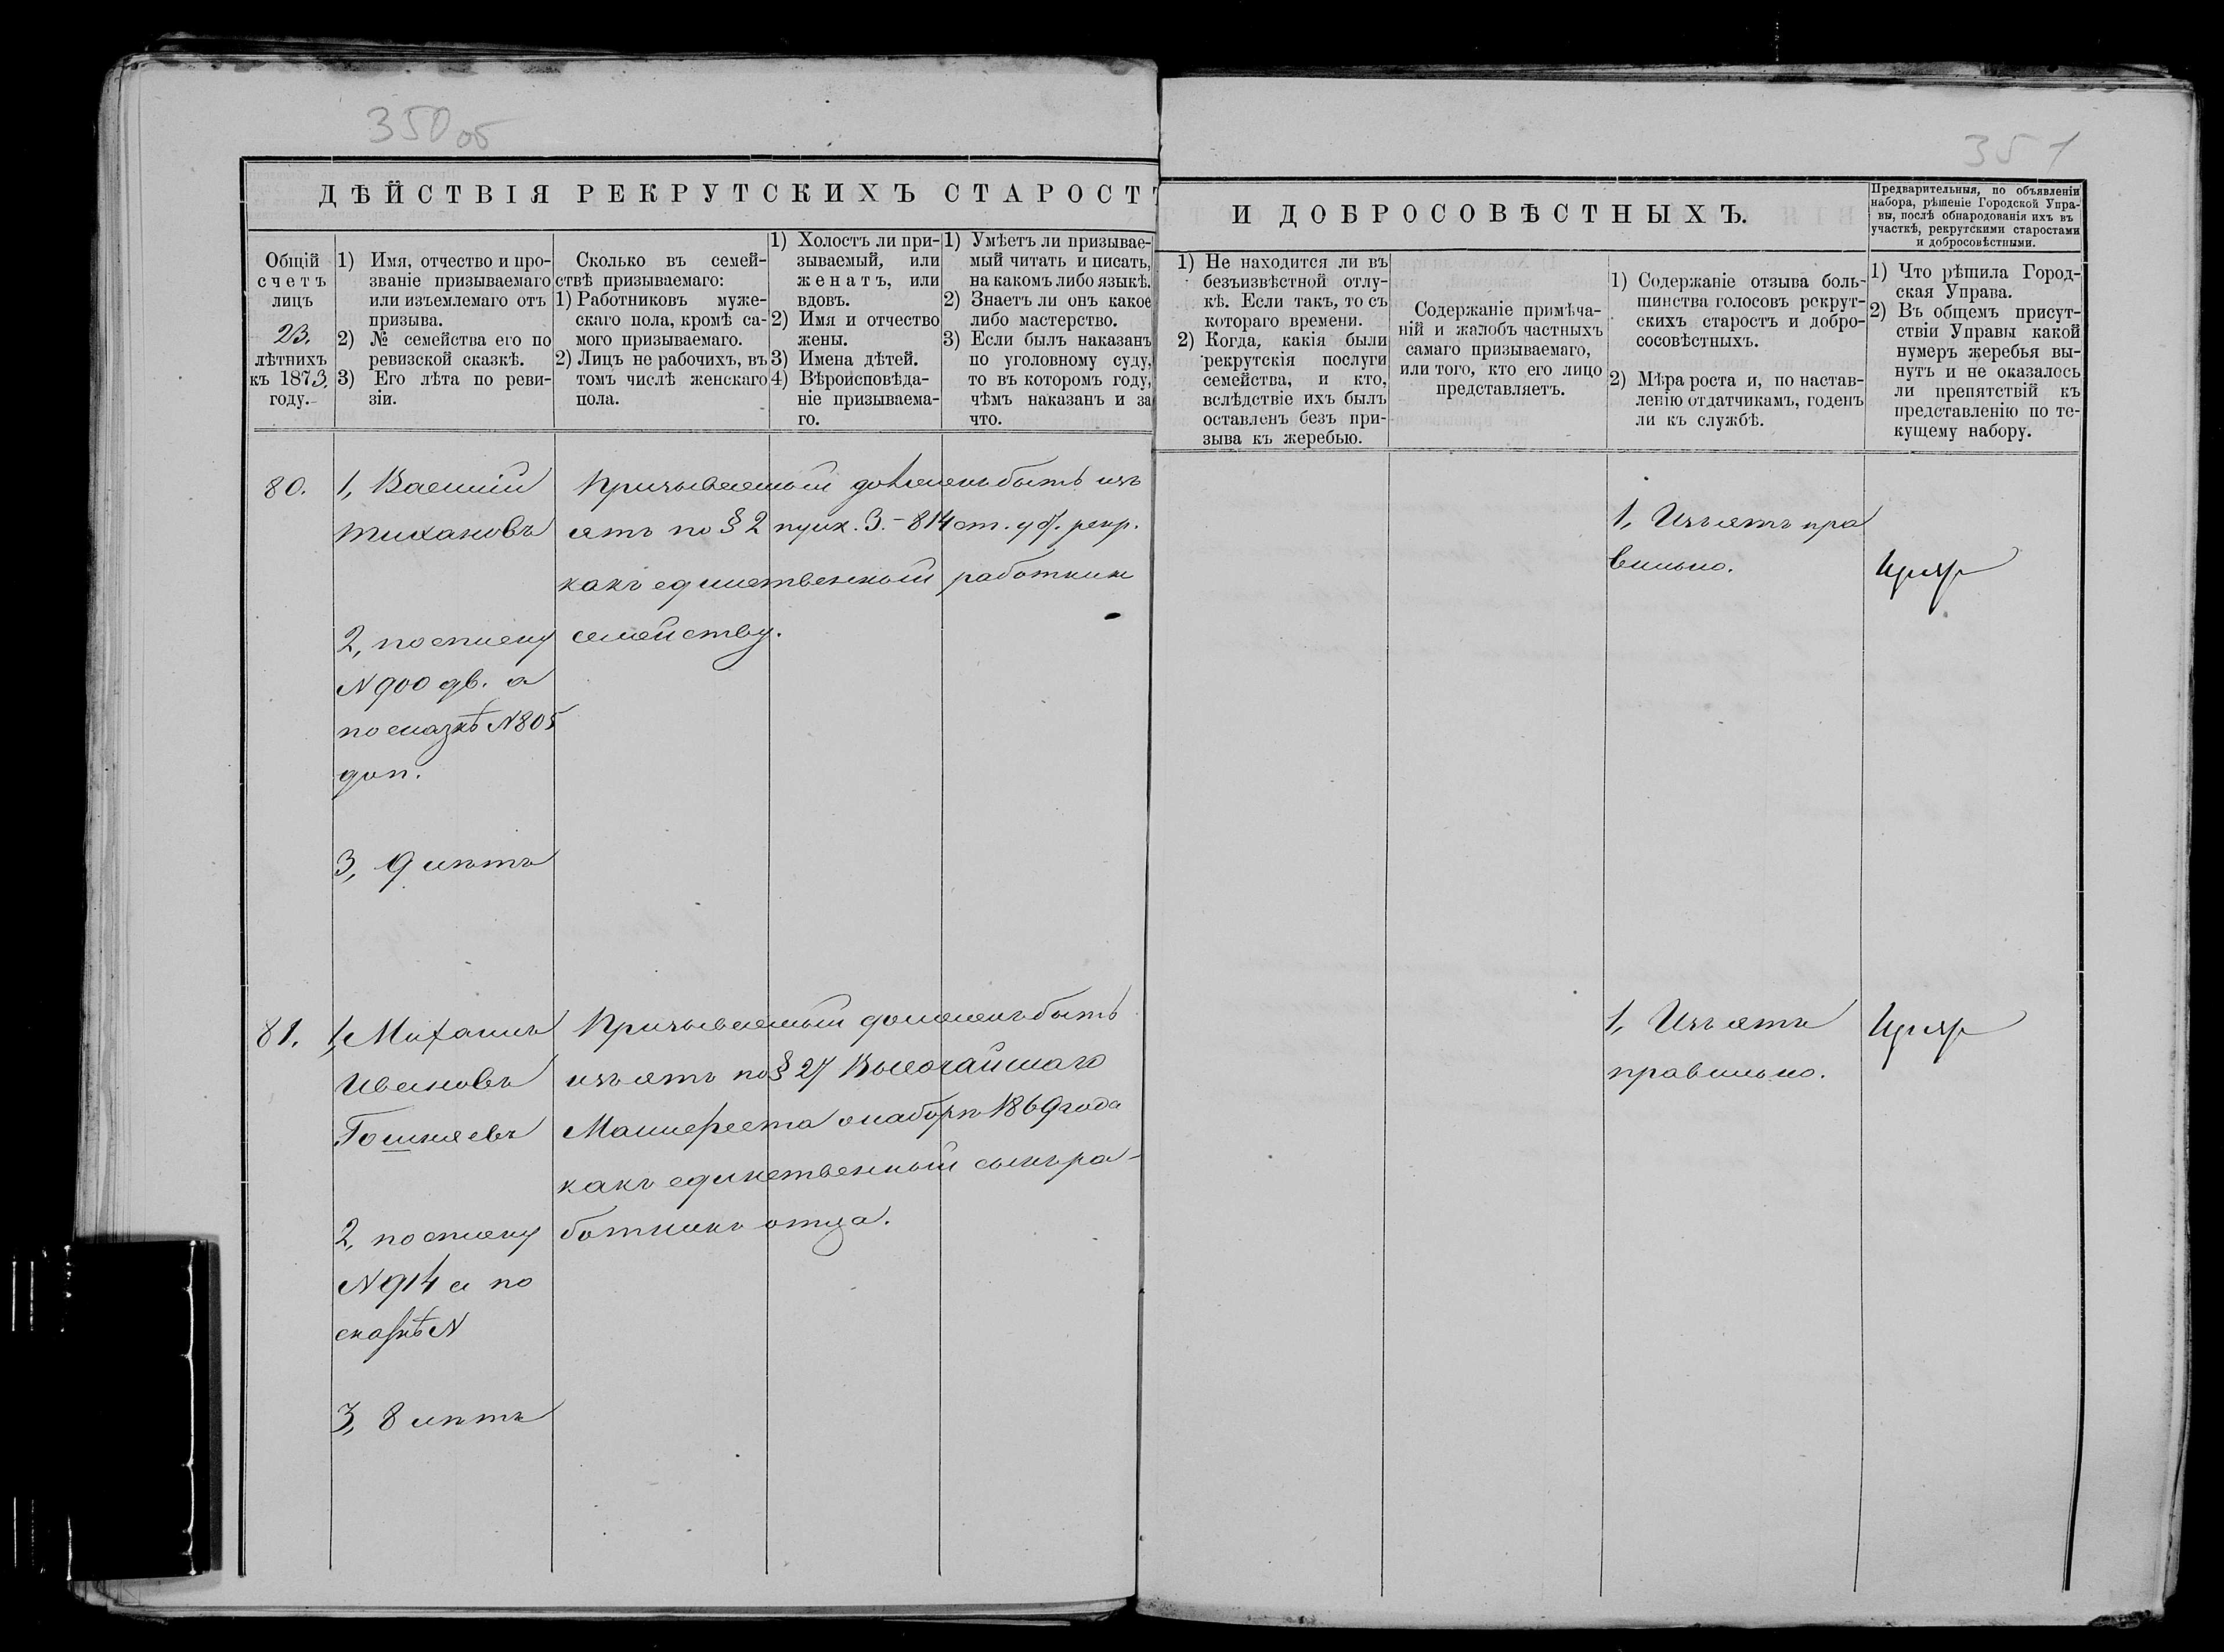 350 об
351
ДѢЙСТВІЯ РЕКРУТСКИХЪ СТАРОСТЪ
И ДОБРОСОВѢСТНЫХЪ.
Предварительныя, по объявленіи
набора, рѣшеніе Городской Упра-
вы, послѣ обнародованія ихъ въ
участкѣ, рекрутскими старостами
и добросовѣстными.
Общій
счетъ
лицъ
23.
лѣтнихъ
къ 1873.
году.
1) Имя, отчество и про-
званіе призываемаго
или изъемлемаго отъ
призыва.
2) № семейства его по
ревизской сказкѣ.
3) Его лѣта по реви-
зіи.
Сколько въ семей-
ствѣ призываемаго:
1) Работниковъ муже-
скаго пола, кромѣ са-
мого призываемаго.
2) Лицъ не рабочихъ, въ
томъ числѣ женскаго
пола.
1) Холостъ ли при-
зываемый, или
женатъ, или
вдовъ.
2) Имя и отчество
жены.
3) Имена дѣтей.
4) Вѣроисповѣда-
ніе призываема-
го.
1) Умѣетъ ли призывае-
мый читать и писать,
на какомъ либо языкѣ.
2) Знаетъ ли онъ какое
либо мастерство.
3) Если былъ наказанъ
по уголовному суду,
то въ которомъ году,
чѣмъ наказанъ и за
что.
1) Не находится ли въ
безъизвѣстной отлу-
кѣ. Если такъ, то съ
котораго времени.
2) Когда, какія были
рекрутскія послуги
семейства, и кто,
вслѣдствіе ихъ былъ
оставленъ безъ при-
зыва къ жеребью.
Содержаніе примѣча-
ній и жалобъ частныхъ
самаго призываемаго,
или того, кто его лицо
представляетъ.
1) Содержаніе отзыва боль-
шинства голосовъ рекрут-
скихъ старостъ и добро-
сосовѣстныхъ.
2) Мѣра роста и, по настав-
ленію отдатчикамъ, годенъ
ли къ службѣ.
1) Что рѣшила Город-
ская Управа.
2) Въ общемъ присут-
ствіи Управы какой
нумеръ жеребья вы-
нутъ и не оказалось
ли препятствій къ
представленію по те-
кущему набору.
80.
1, Василій
Тихановъ
2, по списку
N 900 дв. а
по сказкѣ N 805
доп.
3, 9 лѣтъ
Призываемый долженъ быть изъ
ятъ по § 2 пунк. 3.-814 ст. уст. рекр.
какъ единственный работникъ
семейству.
1, Изъятъ пра
вильно.
81.
1, Михаилъ
Ивановъ
Гошняевъ
2, по списку
N 914 а по
сказкѣ N
3, 8 лѣтъ
Призываемый долженъ быть
изъятъ по § 27 Высочайшаго
Манифеста о наборѣ 1869 года
какъ единственный сынъ ра-
ботникъ отца.
1, Изъятъ
правильно.